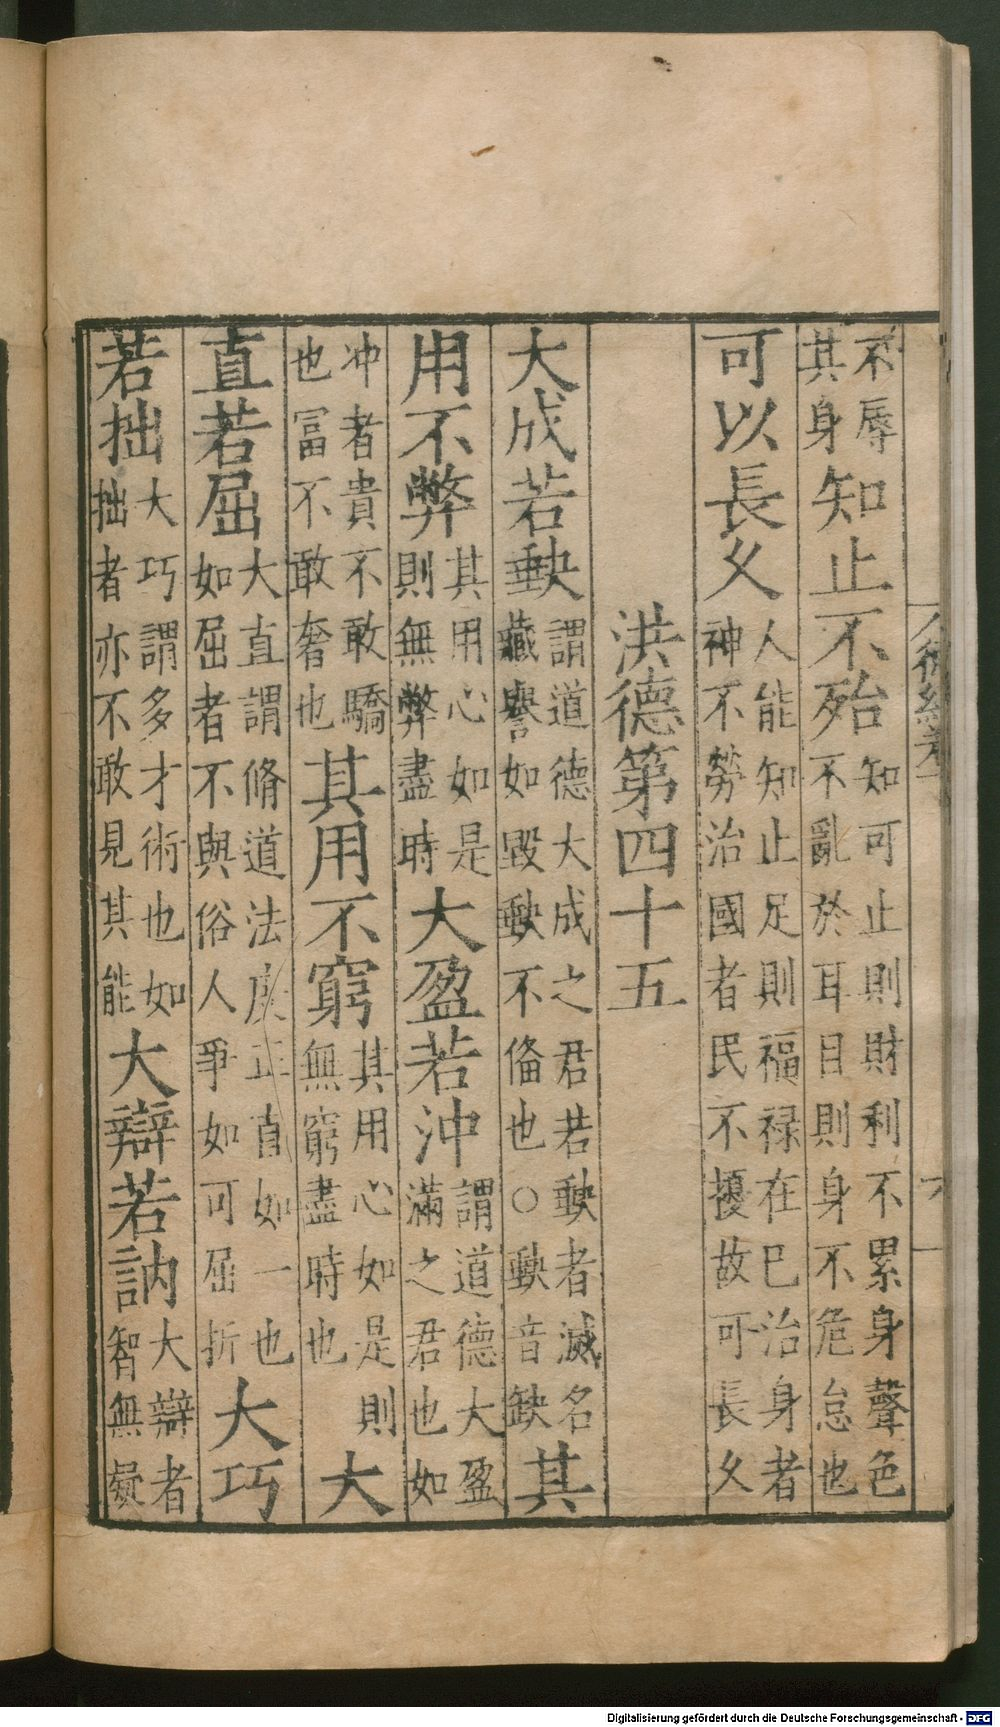 不辱
其身知止不殆知可止則財利不累身聲色
不亂於耳目則身不危怠也
可以長乆人能知止足則福祿在巳治身者
神不勞治國者民不擾故可長乆
洪德第四十五
大成若𡙇謂道德大成之君若𡙇者滅名
藏譽如毀𡙇不俻也○𡙇音缺其
用不弊其用心如是
則無弊盡時大盈若沖謂道德大盈
滿之君也如
冲者貴不敢驕
也冨不敢奢也其用不窮其用心如是則
無窮盡時也大
直若屈大直謂脩道法度正直如一也
如屈者不與俗人爭如可屈折大巧
若拙大巧謂多才術也如
拙者亦不敢見其能大辯若訥大辯者
智無疑
Digitalisierung gefördert durch die Deutsche Forschungsgemeinschaft - DFG